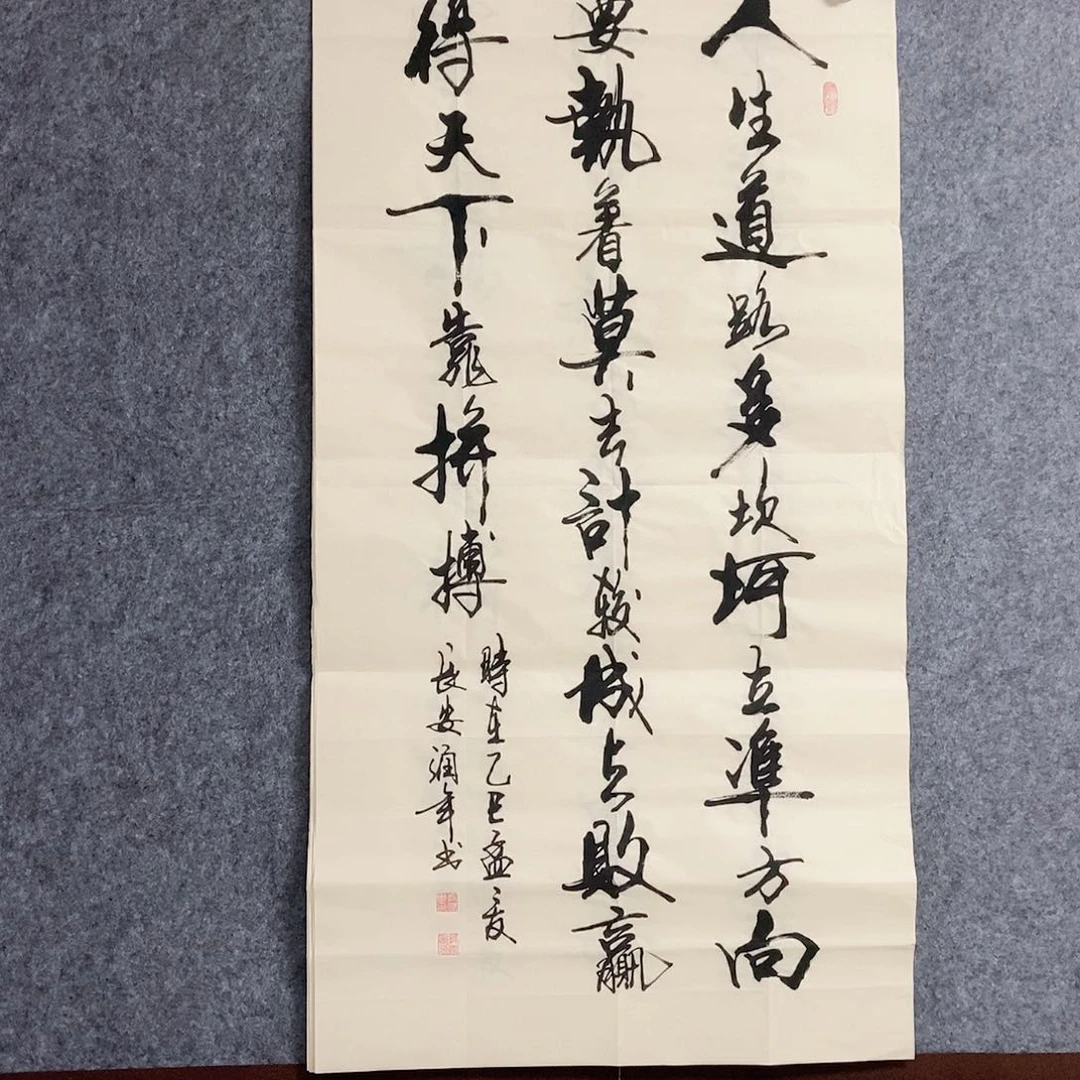 人生道路多坎坷立準方向
要執着莫去計較成與敗贏
得天下靠拼搏
時在乙巳孟夏
長安潤年書